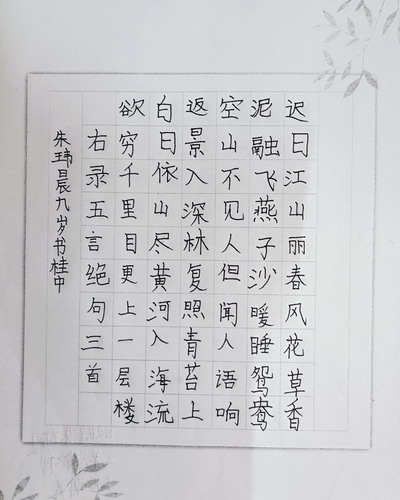 迟日江山丽春风花草香
泥融飞燕子沙暖睡鸳鸯
空山不见人但闻人语响
返景入深林复照青苔上
白日依山尽黄河入海流
欲穷千里目更上一层楼
右录五言绝句三首
朱玮晨九岁书桂中